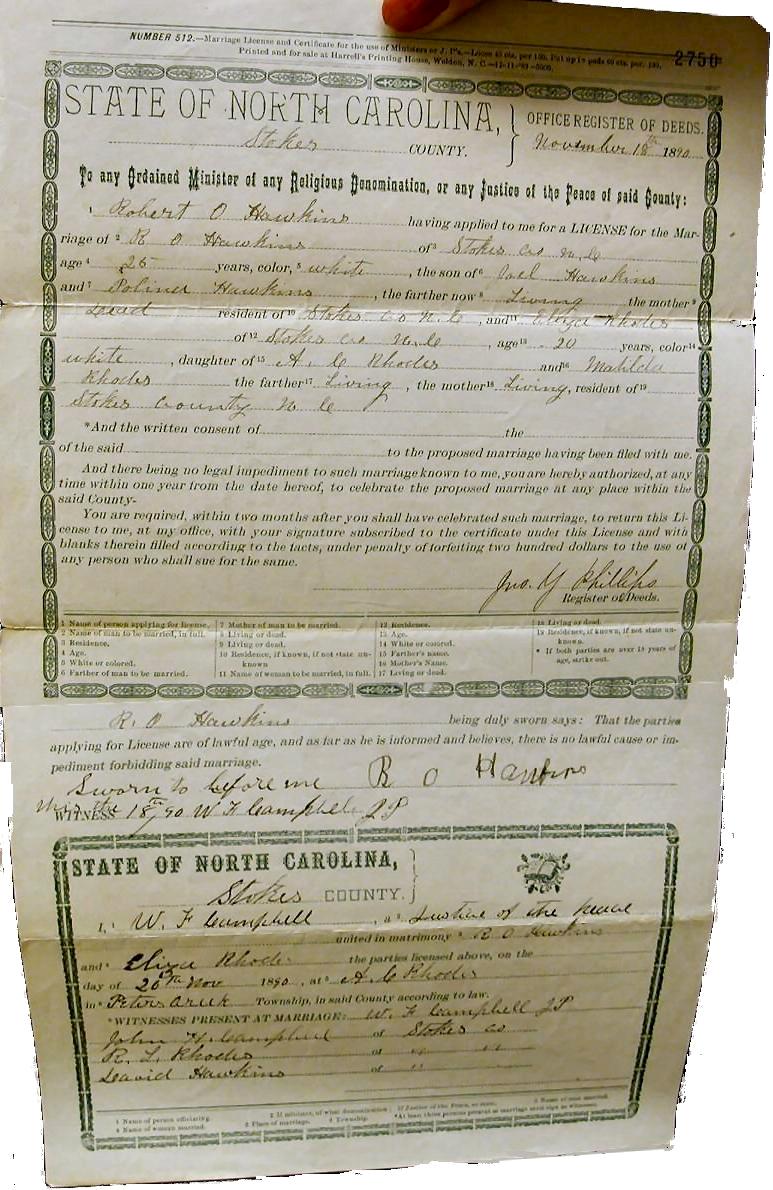 NUMBER 512.—Marriage License and Certificate for the use of Ministers or J. P's.—Loose 45 cts. per 100. Put up in pads 60 cts. per. 100.
Printed and for sale at Harrell's Printing House, Weldon, N. C.
2750
STATE OF NORTH CAROLINA,
OFFICE REGISTER OF DEEDS.
Stokes COUNTY.
November 18th 1890
To any Ordained Minister of any Religious Denomination, or any Justice of the Peace of said County:
1 Robert O Hawkins having applied to me for a LICENSE for the Mar-
riage of 2 R O Hawkins of 3 Stokes co N. C
age 4 25 years, color, 5 white, the son of 6 Joel Hawkins
and 7 Polina Hawkins, the farther now 8 Living the mother 9
Dead resident of 10 Stokes co N. C, and 11 Eliza Rhodes
of 12 Stokes co N. C, age 13 20 years, color 14
white, daughter of 15 A. C Rhodes and 16 Matilda
Rhodes the farther 17 Living, the mother 18 Living, resident of 19
Stokes County N C
*And the written consent of the
of the said to the proposed marriage having been filed with me.
And there being no legal impediment to such marriage known to me, you are hereby authorized, at any
time within one year from the date hereof, to celebrate the proposed marriage at any place within the
said County-
You are required, within two months after you shall have celebrated such marriage, to return this Li-
cense to me, at my office, with your signature subscribed to the certificate under this License and with
blanks therein filled according to the facts, under penalty of forfeiting two hundred dollars to the use of
any person who shall sue for the same.
Jno. Y Phillips
Register of Deeds.
1 Name of person applying for license.
2 Name of man to be married, in full.
3 Residence.
4 Age.
5 White or colored.
6 Farther of man to be married.
7 Mother of man to be married.
8 Living or dead.
9 Living or dead.
10 Residence, if known, if not state un-
known
11 Name of woman to be married, in full.
12 Residence.
13 Age.
14 White or colored.
15 Farther's name.
16 Mother's Name.
17 Living or dead.
18 Living or dead.
19 Residence, if known, if not state un-
known.
* If both parties are over 18 years of
age, strike out.
R. O Hawkins being duly sworn says: That the parties
applying for License are of lawful age, and as far as he is informed and believes, there is no lawful cause or im-
pediment forbidding said marriage.
Sworn to before me R O Hawkins
this the 18th/90 W F Campbell JP
WITNESS
STATE OF NORTH CAROLINA,
Stokes COUNTY.
I, W. F Campbell, a Justice of the peace
united in matrimony R O Hawkins
and Eliza Rhodes the parties licensed above, on the
day of 20th Nov 1890, at A. C Rhodes
in Peters Creek Township, in said County according to law.
*WITNESSES PRESENT AT MARRIAGE: W. F Campbell JP
John H. Campbell of Stokes co
R. L. Rhodes of " "
David Hawkins of "
1 Name of person officiating.
2 If minister, of what denomination; if Justice of the Peace, so state.
3 Name of man married.
4 Name of woman married.
5 Place of marriage.
6 Township.
*At least three persons present at marriage must sign as witnesses.